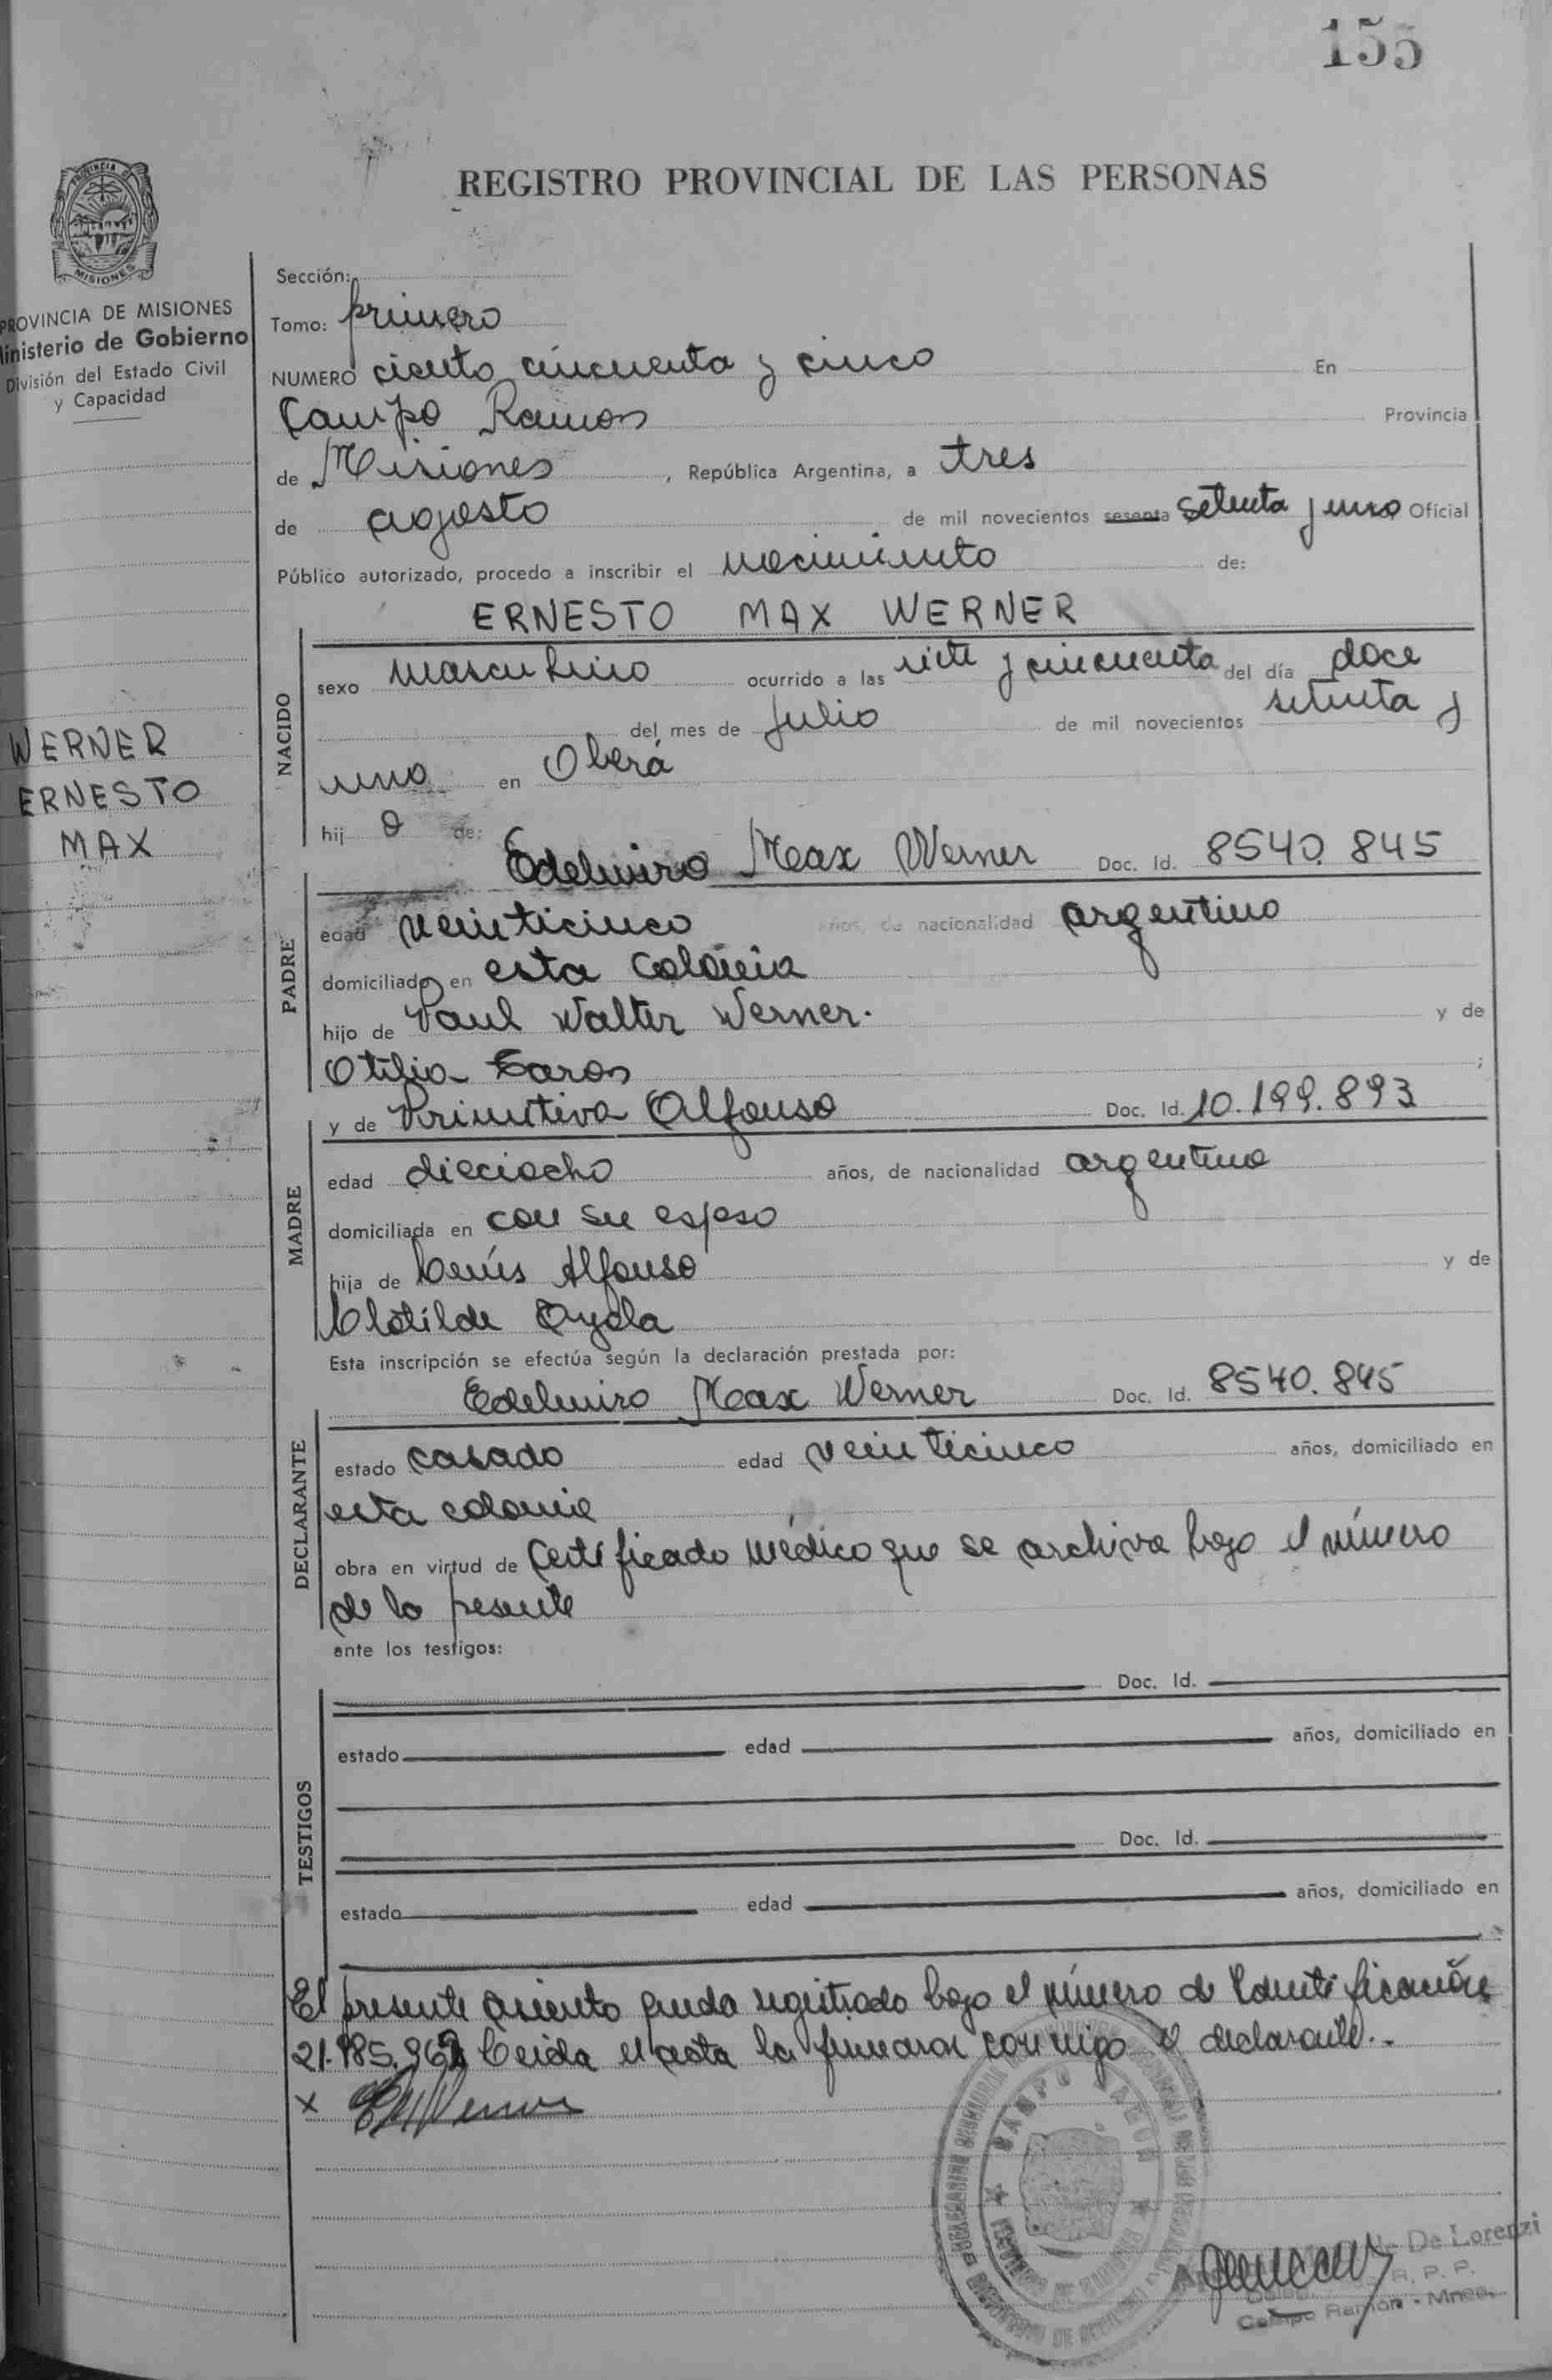 155
REGISTRO PROVINCIAL DE LAS PERSONAS
PROVINCIA DE MISIONES
Ministerio de Gobierno
División del Estado Civil
y Capacidad
WERNER
ERNESTO
MAX
Sección:
Tomo: primero
NUMERO ciento cincuenta y cinco En
Campo Ramon Provincia
de Misiones, República Argentina, a tres
de agosto de mil novecientos sesenta setenta y uno Oficial
Público autorizado, procedo a inscribir el nacimiento de:
ERNESTO MAX WERNER
NACIDO
sexo masculino ocurrido a las siete y cincuenta del día doce
del mes de Julio de mil novecientos setenta y
uno en Oberá
hij o de:
Edelmiro Max Werner Doc. Id. 8540.845
PADRE
edad veinticinco años, de nacionalidad argentino
domiciliado en esta Colonia
hijo de Paul Walter Werner. y de
Otilia ;
y de Primitiva Alfonso Doc. Id. 10.199.893
MADRE
edad dieciocho años, de nacionalidad argentina
domiciliada en con su esposo
hija de Alfonso y de
Clotilde Ayala
Esta inscripción se efectúa según la declaración prestada por:
Edelmiro Max Werner Doc. Id. 8540.845
DECLARANTE
estado casado edad veinticinco años, domiciliado en
esta colonia
obra en virtud de Certificado médico que se archiva bajo el número
de la presente
ante los testigos:
Doc. Id.
TESTIGOS
estado edad años, domiciliado en
Doc. Id.
estado edad años, domiciliado en
El presente asiento queda registrado bajo el número de Identificación
Leida el acta la firmaron conmigo el declarante.-
x
De Lorenzi
R. P. P.
Campo Ramón - Mnes.